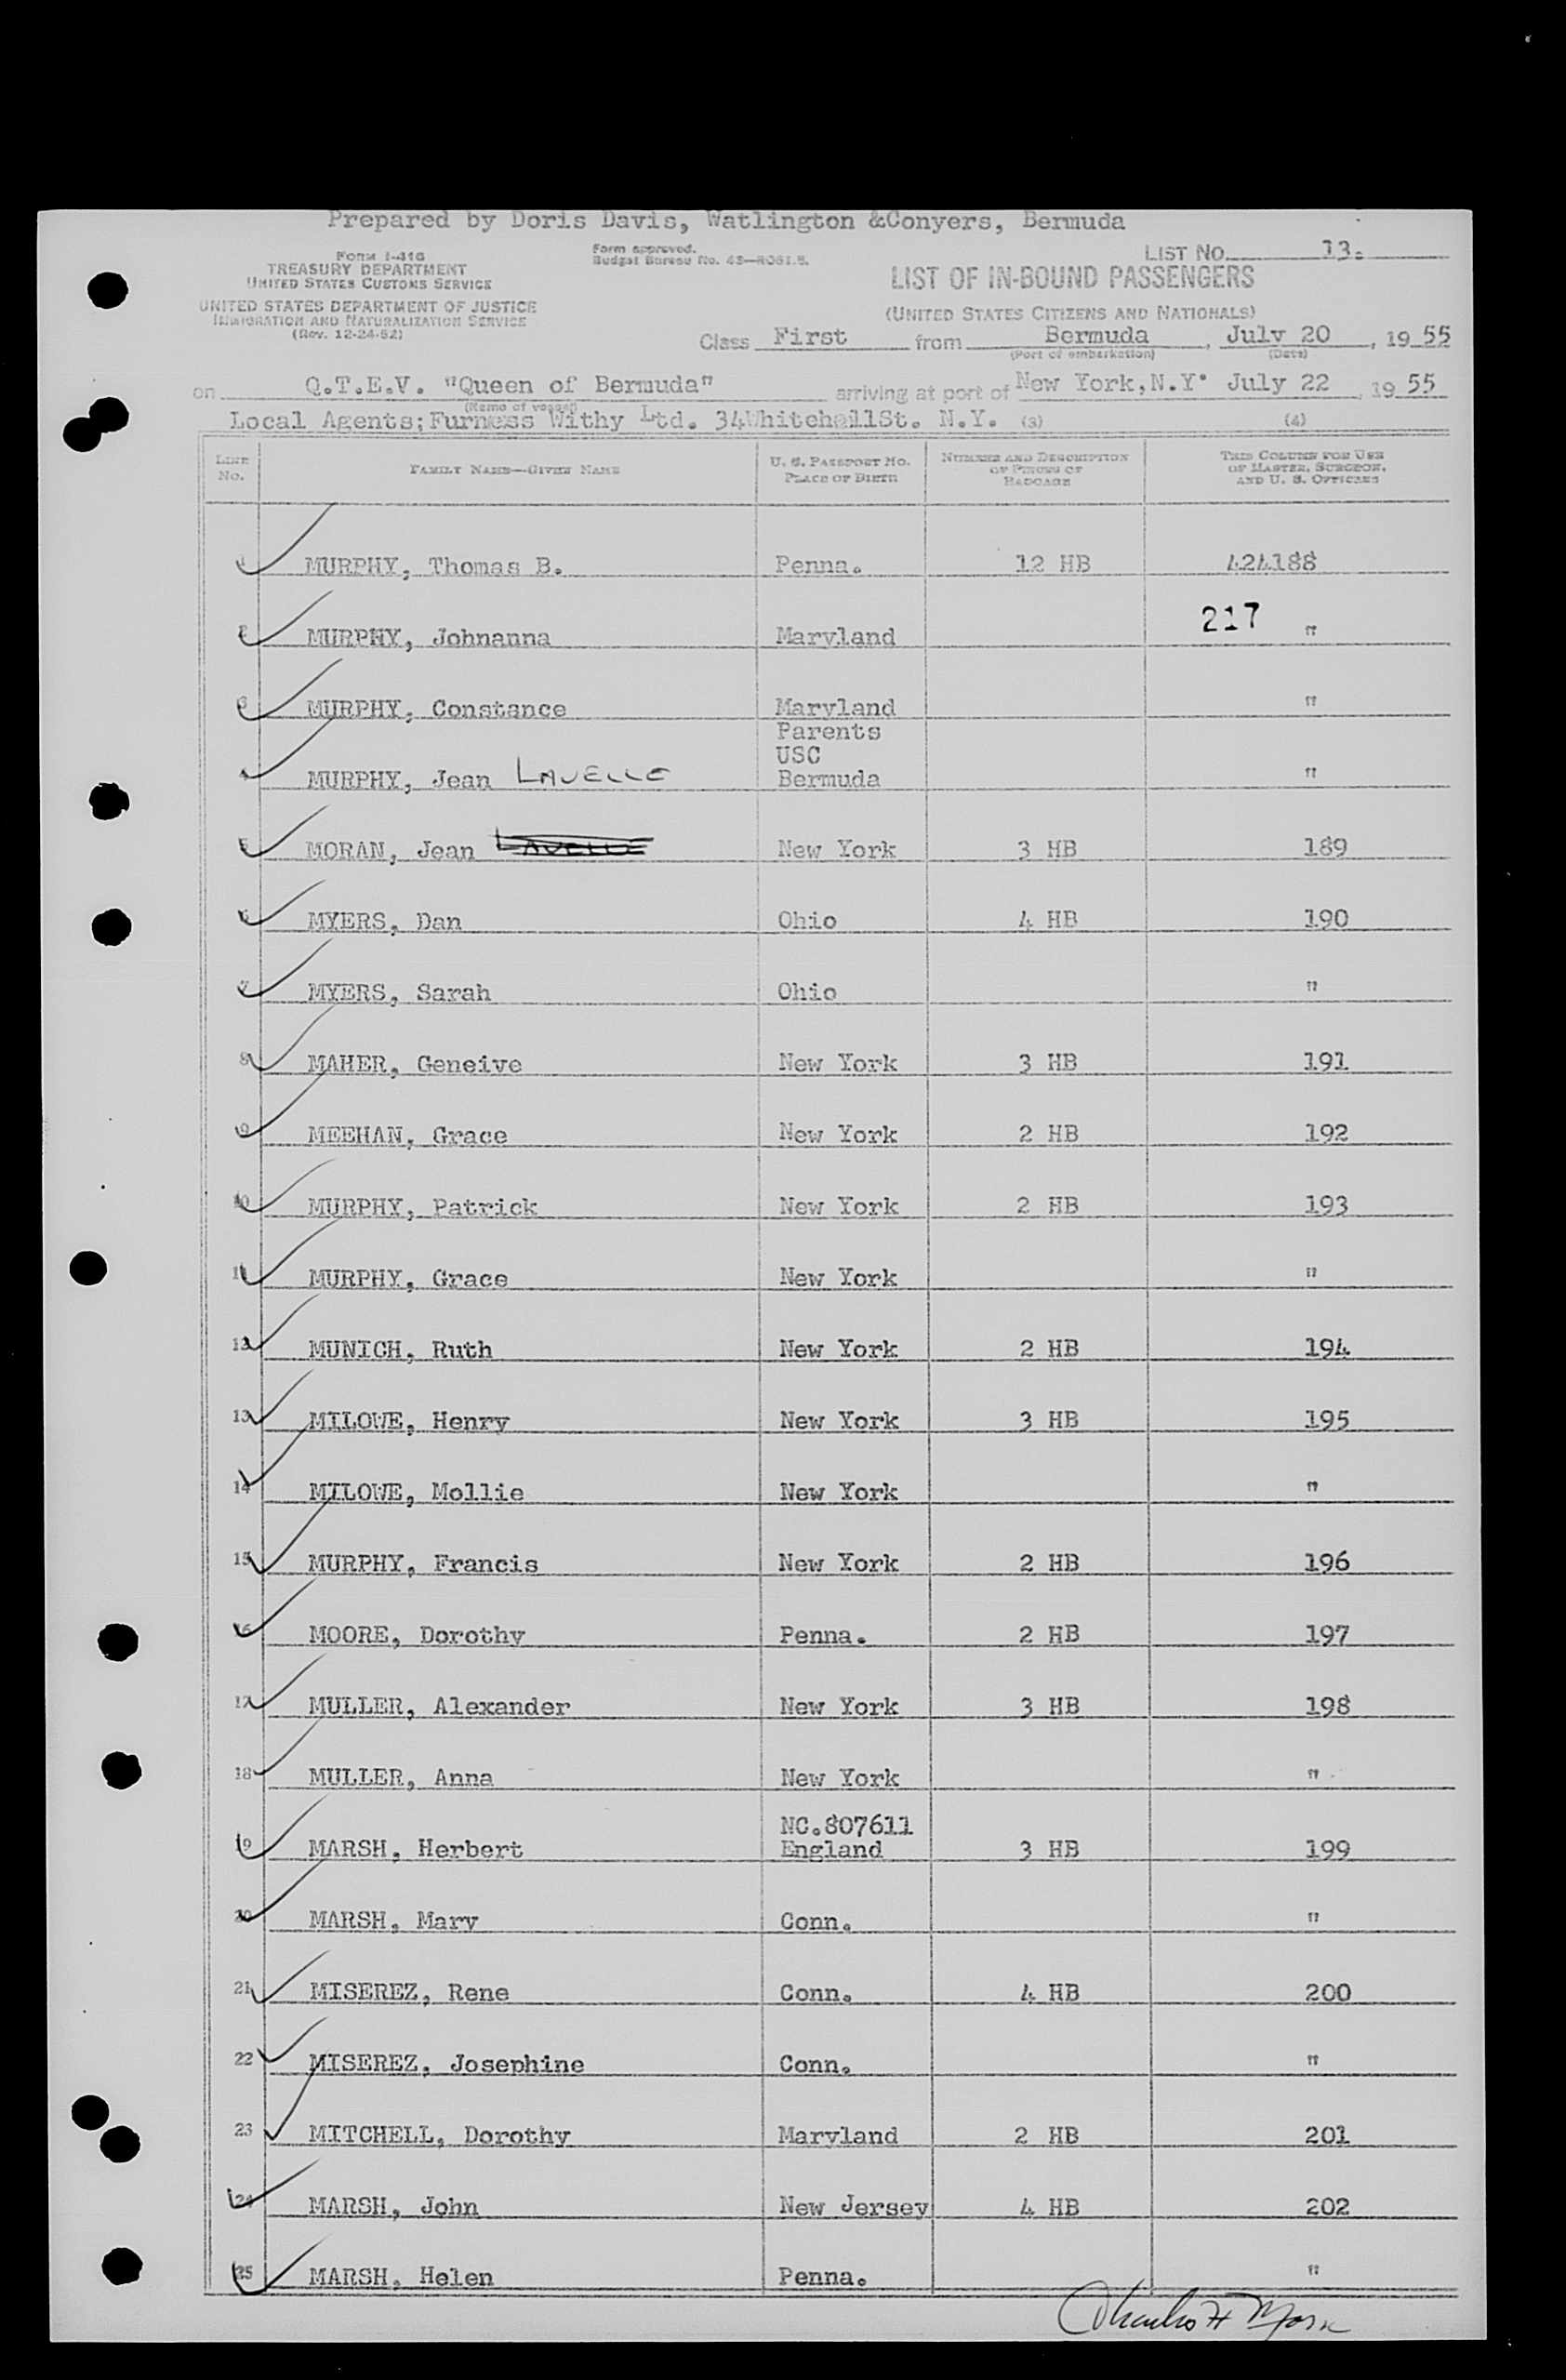 Prepared by Doris Davis, Watlington &Conyers, Bermuda
Form I-416
TREASURY DEPARTMENT
UNITED STATES CUSTOMS SERVICE
UNITED STATES DEPARTMENT OF JUSTICE
IMMIGRATION AND NATURALIZATION SERVICE
(Rev. 12-24-52)
Form approved.
Budget Bureau No. 43—R081.5.
LIST NO. 13.
LIST OF IN-BOUND PASSENGERS
(UNITED STATES CITIZENS AND NATIONALS)
Class First from Bermuda, July 20, 19 55
(Port of embarkation) (Date)
on Q.T.E.V. "Queen of Bermuda" arriving at port of New York,N.Y. July 22, 19 55
(Name of vessel)
Local Agents;Furness Withy Ltd. 34WhitehallSt. N.Y. (3) (4)
LINE No. FAMILY NAME—GIVEN NAME U. S. PASSPORT NO. PLACE OF BIRTH NUMBER AND DESCRIPTION OF PIECES OF BAGGAGE THIS COLUMN FOR USE OF MASTER, SURGEON, AND U. S. OFFICERS
1 MURPHY, Thomas B. Penna. 12 HB 424188
2 MURPHY, Johnanna Maryland 217 "
3 MURPHY, Constance Maryland "
Parents
USC
4 MURPHY, Jean LAVELLE Bermuda "
5 MORAN, Jean LAVELLE New York 3 HB 189
6 MYERS, Dan Ohio 4 HB 190
7 MYERS, Sarah Ohio "
8 MAHER, Geneive New York 3 HB 191
9 MEEHAN, Grace New York 2 HB 192
10 MURPHY, Patrick New York 2 HB 193
11 MURPHY, Grace New York "
12 MUNICH, Ruth New York 2 HB 194
13 MILOWE, Henry New York 3 HB 195
14 MILOWE, Mollie New York "
15 MURPHY, Francis New York 2 HB 196
16 MOORE, Dorothy Penna. 2 HB 197
17 MULLER, Alexander New York 3 HB 198
18 MULLER, Anna New York "
NC.807611
19 MARSH, Herbert England 3 HB 199
20 MARSH, Mary Conn. "
21 MISEREZ, Rene Conn. 4 HB 200
22 MISEREZ, Josephine Conn. "
23 MITCHELL, Dorothy Maryland 2 HB 201
24 MARSH, John New Jersey 4 HB 202
25 MARSH, Helen Penna. "